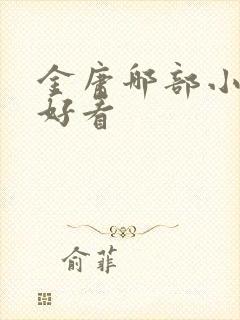 金庸哪部小
好看
俞菲